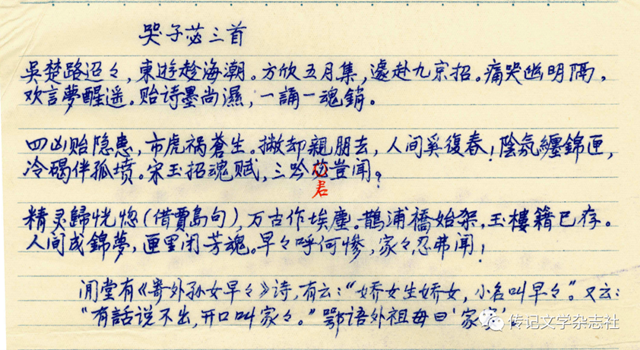 哭子苾三首
吴楚路迢々，東遊趁海潮。方欣五月集，遽赴九京招。痛哭幽明隔，
欢言夢醒遥。贻诗墨尚濕，一誦一魂銷。
四凶贻隐患，市虎祸蒼生。撇却親朋去，人间奚復春！陰氛纏錦匣，
冷碣伴孤坟。宋玉招魂赋，三吟君豈闻？
精灵歸恍惚（借賈島句），万古作埃塵。鹊浦橋始架，玉樓籍已存。
人间成錦夢，匣里闭芳魂。早々呼何惨，家々忍弗闻！
闲堂有《寄外孙女早々》诗，有云：“娇女生娇女，小名叫早々”。又云：
“有話说不出，开口叫家々。”鄂语外祖母曰‘家家’。
传记文学杂志社